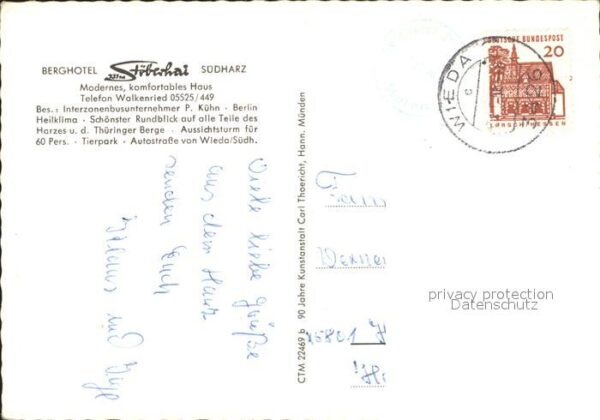 BERGHOTEL Stöberhai SÜDHARZ
Modernes, komfortables Haus
Telefon Walkenried 05525/449
Bes.: Interzonenbusunternehmer P. Kühn · Berlin
Heilklima · Schönster Rundblick auf alle Teile des
Harzes u. d. Thüringer Berge · Aussichtsturm für
60 Pers. · Tierpark · Autostraße von Wieda/Südh.
Viele liebe Grüße
aus dem Harz
senden Euch
Klaus und Inge
CTM 22469 b 90 Jahre Kunstanstalt Carl Thoericht, Hann. Münden
DEUTSCHE BUNDESPOST
20
WIEDA
LORSCH/HESSEN
Fam
Werner
privacy protection
Datenschutz